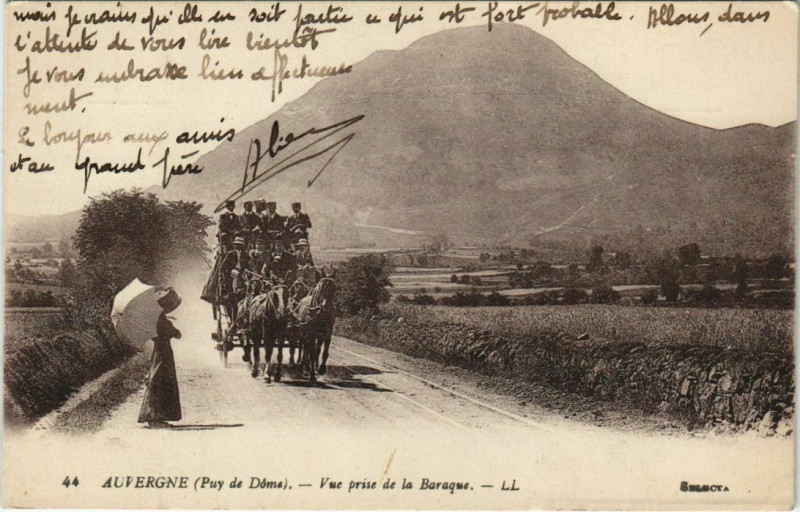 mais je crains qu'elle en soit partie ce qui est fort probable. Allons, dans
l'attente de vous lire bientôt
Je vous embrasse bien affectueuse
ment.
Le bonjour aux amis
et au grand père
44 AUVERGNE (Puy de Dôme). — Vue prise de la Baraque. — LL
SELECTA